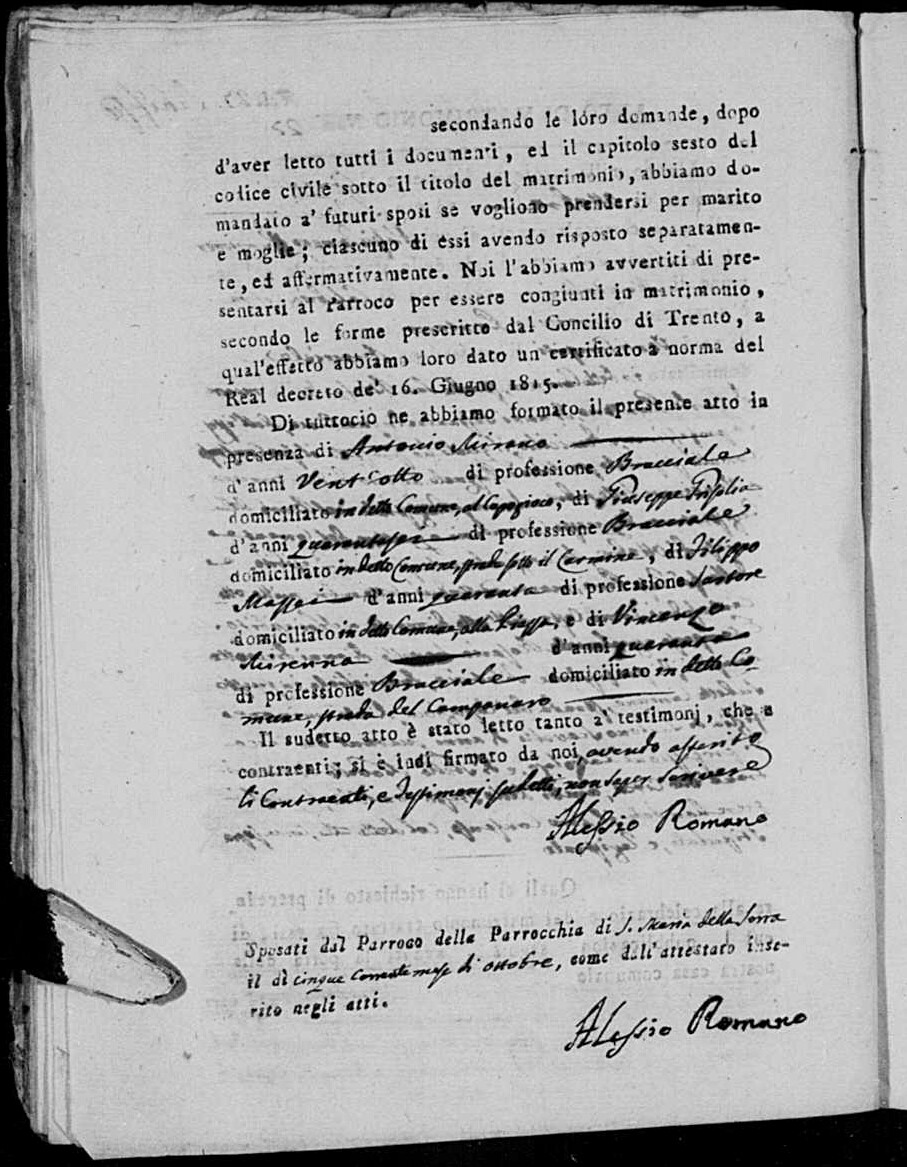 secondando le loro domande, dopo
d'aver letto tutti i documenti, ed il capitolo sesto del
codice civile sotto il titolo del matrimonio, abbiamo do-
mandato a' futuri sposi se vogliono prendersi per marito
e moglie; ciascuno di essi avendo risposto separatamen-
te, ed affermativamente. Noi l'abbiamo avvertiti di pre-
sentarsi al Parroco per essere congiunti in matrimonio,
secondo le forme prescritte dal Concilio di Trento, a
qual'effetto abbiamo loro dato un certificato a norma del
Real decreto de' 16. Giugno 1815.
Di tuttociò ne abbiamo formato il presente atto in
presenza di Antonio
d'anni Vent'otto di professione Bracciale
domiciliato in detto Comune, al Capogioco, di Giuseppe Frisolia
d'anni quarantasei di professione Bracciale
domiciliato in detto Comune, strada sotto il Carmine, di Filippo
Maffei d'anni quaranta di professione Sartore
domiciliato in detto Comune, alla Piazza, e di Vincenzo
d'anni quaranta
di professione Bracciale domiciliato in detto Co-
mune, strada del Campanaro
Il sudetto atto è stato letto tanto a' testimonj, che a
contraenti; si è indi firmato da noi, avendo asserito
li Contraenti, e Testimonj sudetti, non saper scrivere
Alessio Romano
Sposati dal Parroco della Parrocchia di S. Maria della Serra
il dì cinque Corrente mese di Ottobre, come dall'attestato inse-
rito negli atti.
Alessio Romano